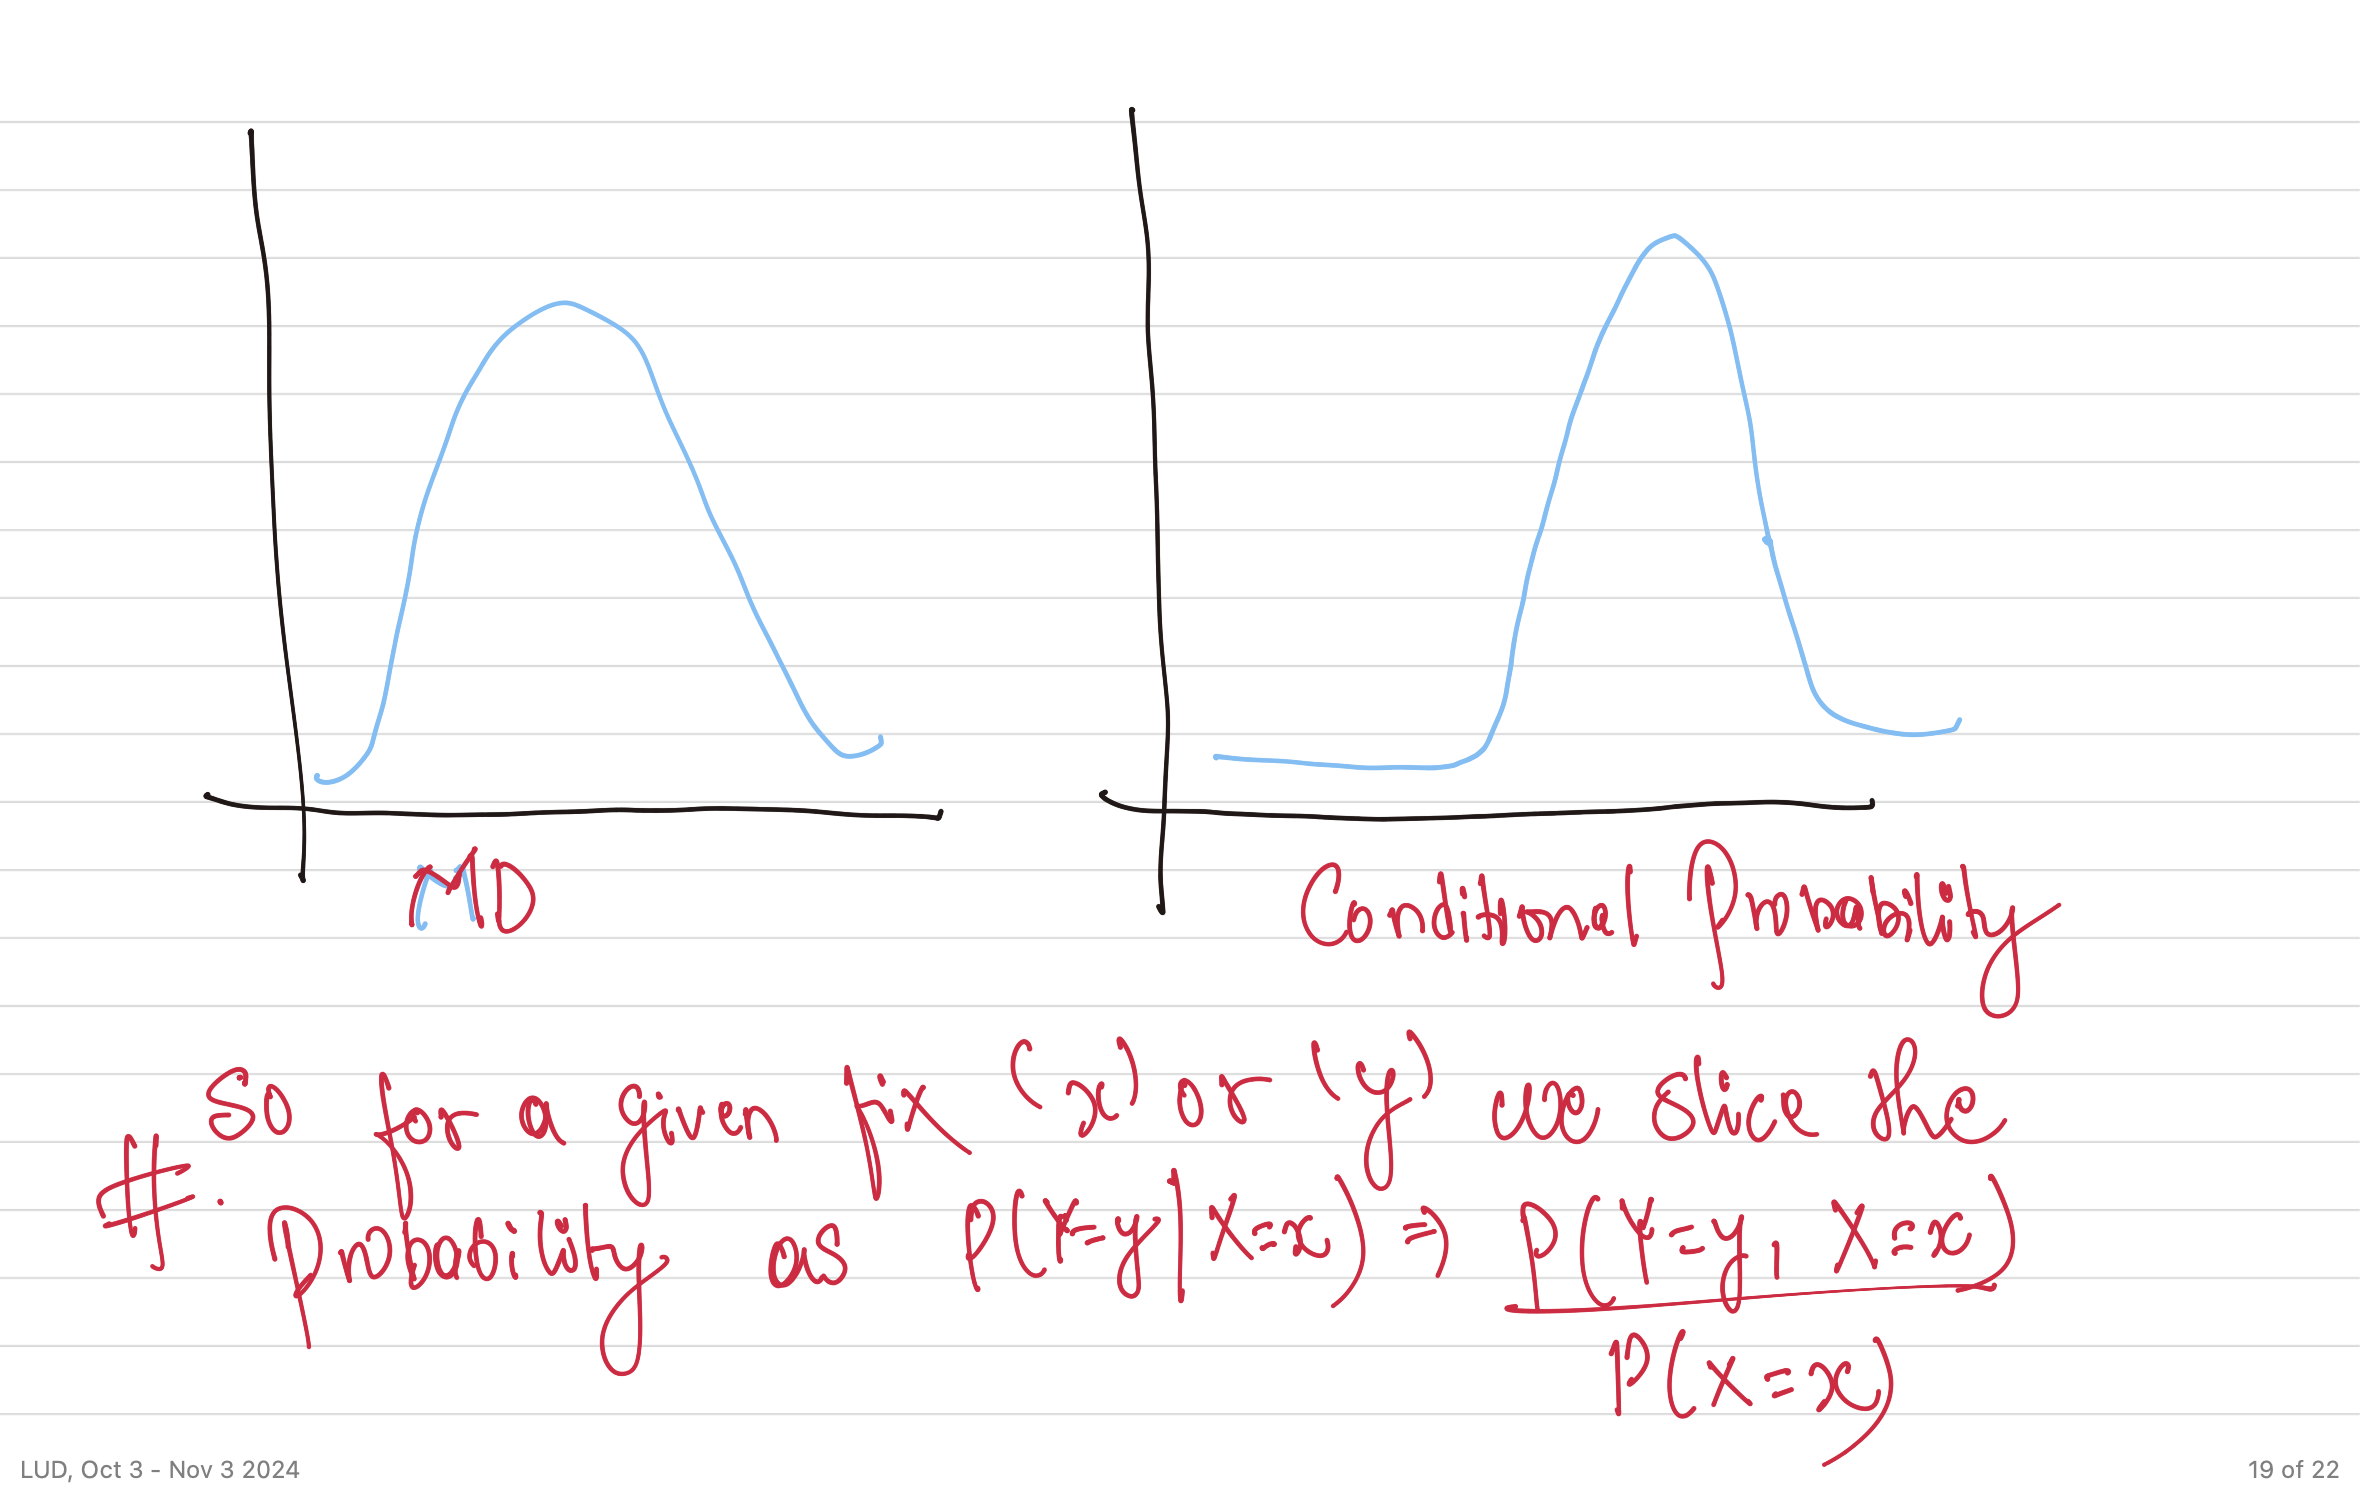 MD
Conditional Probability
#. So for a given fix (x) or (y) we slice the
Probability as P(Y=y|X=x) ⇒ P(Y=y, X=x)
P(X=x)
LUD, Oct 3 - Nov 3 2024
19 of 22